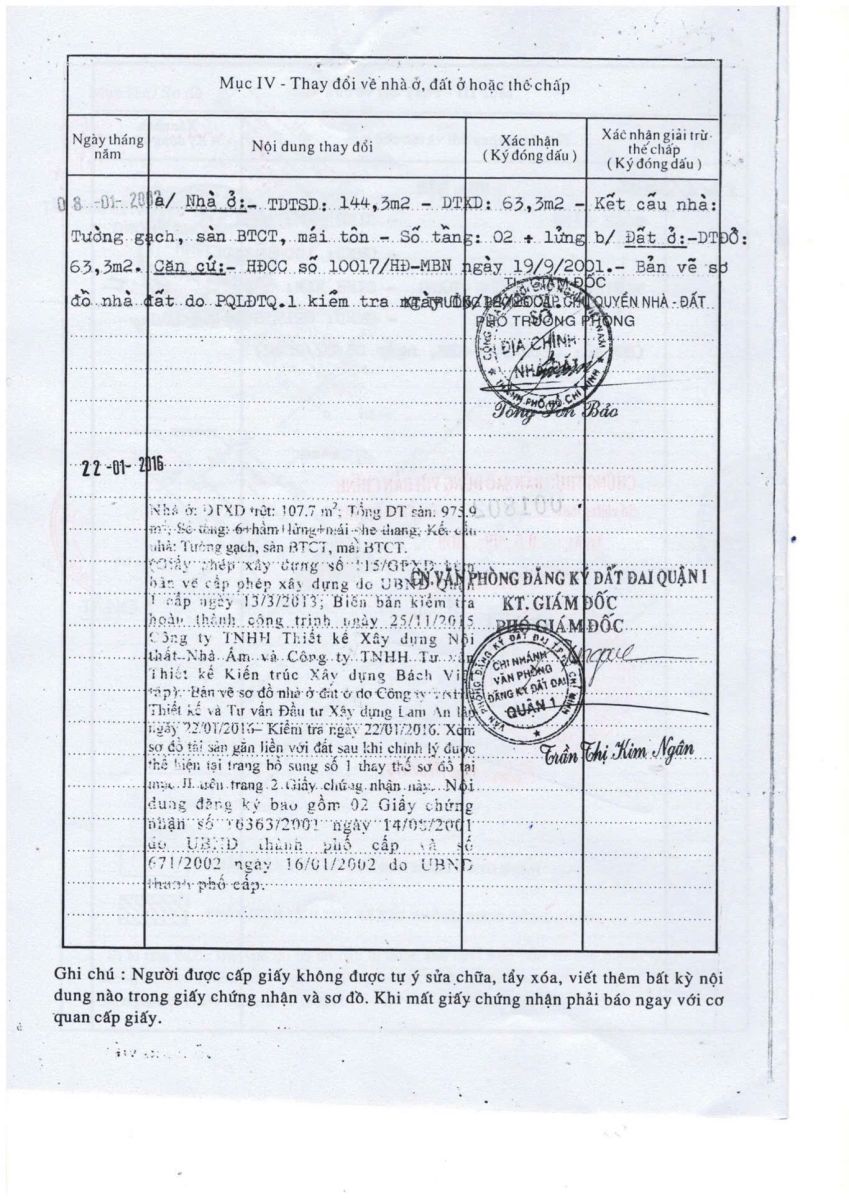 Mục IV - Thay đổi về nhà ở, đất ở hoặc thế chấp
Ngày tháng năm
Nội dung thay đổi
Xác nhận
(Ký đóng dấu)
Xác nhận giải trừ
thế chấp
(Ký đóng dấu)
08 -01- a/ Nhà ở:- TDTSD: 144,3m2 - DTXD: 63,3m2 - Kết cấu nhà:
Tường gạch, sàn BTCT, mái tôn - Số tầng: 02 + lửng b/ Đất ở:-DTĐỞ:
63,3m2. Căn cứ:- HĐCC số 10017/HĐ-MBN ngày 19/9/2001.- Bản vẽ sơ
đồ nhà đất do PQLĐTQ.1 kiểm tra ngày
GIÁM ĐỐC
QUYỀN NHÀ - ĐẤT
PHÓ TRƯỞNG PHÒNG
SỞ
ĐỊA CHÍNH
NHÀ ĐẤT
THÀNH PHỐ HỒ CHÍ MINH
Bảo
22 -01- 2016
Nhà ở: DTXD trệt: 107.7 m²; Tổng DT sàn: 975.9
m²; Số tầng: 6+hầm+lửng+mái che thang; Kết cấu
nhà: Tường gạch, sàn BTCT, mái BTCT.
(Giấy phép xây dựng số 115/GPXD kèm
bản vẽ cấp phép xây dựng do UBND Quận
1 cấp ngày 13/3/2013; Biên bản kiểm tra
hoàn thành công trình ngày 25/11/2015
Công ty TNHH Thiết kế Xây dựng Nội
thất Nhà Ấm và Công ty TNHH Tư vấn
Thiết kế Kiến trúc Xây dựng Bách Việt
lập). Bản vẽ sơ đồ nhà ở đất ở do Công ty TNHH
Thiết kế và Tư vấn Đầu tư Xây dựng Lam An lập
ngày 22/01/2016– Kiểm tra ngày 22/01/2016. Xem
sơ đồ tài sản gắn liền với đất sau khi chỉnh lý được
thể hiện tại trang bổ sung số 1 thay thế sơ đồ tại
mục II trên trang 2 Giấy chứng nhận này. Nội
dung đăng ký bao gồm 02 Giấy chứng
nhận số 16363/2001 ngày
do UBND thành phố cấp và số
671/2002 ngày 16/01/2002 do UBND
thành phố cấp.
CN VĂN PHÒNG ĐĂNG KÝ ĐẤT ĐAI QUẬN 1
KT. GIÁM ĐỐC
PHÓ GIÁM ĐỐC
CHI NHÁNH
VĂN PHÒNG
ĐĂNG KÝ ĐẤT ĐAI
QUẬN 1
Trần Thị Kim Ngân
Ghi chú : Người được cấp giấy không được tự ý sửa chữa, tẩy xóa, viết thêm bất kỳ nội
dung nào trong giấy chứng nhận và sơ đồ. Khi mất giấy chứng nhận phải báo ngay với cơ
quan cấp giấy.